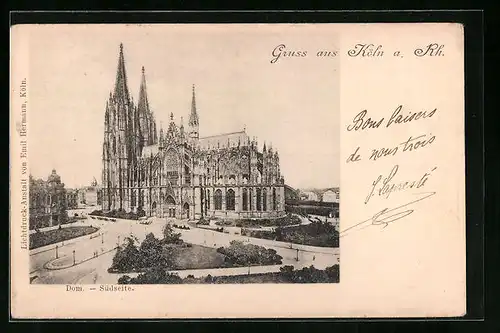 Gruss aus Köln a. Rh.
Lichtdruck-Anstalt von Emil Hermann, Köln.
Bons baisers
de nous trois
J. Lapresté
Dom. – Südseite.